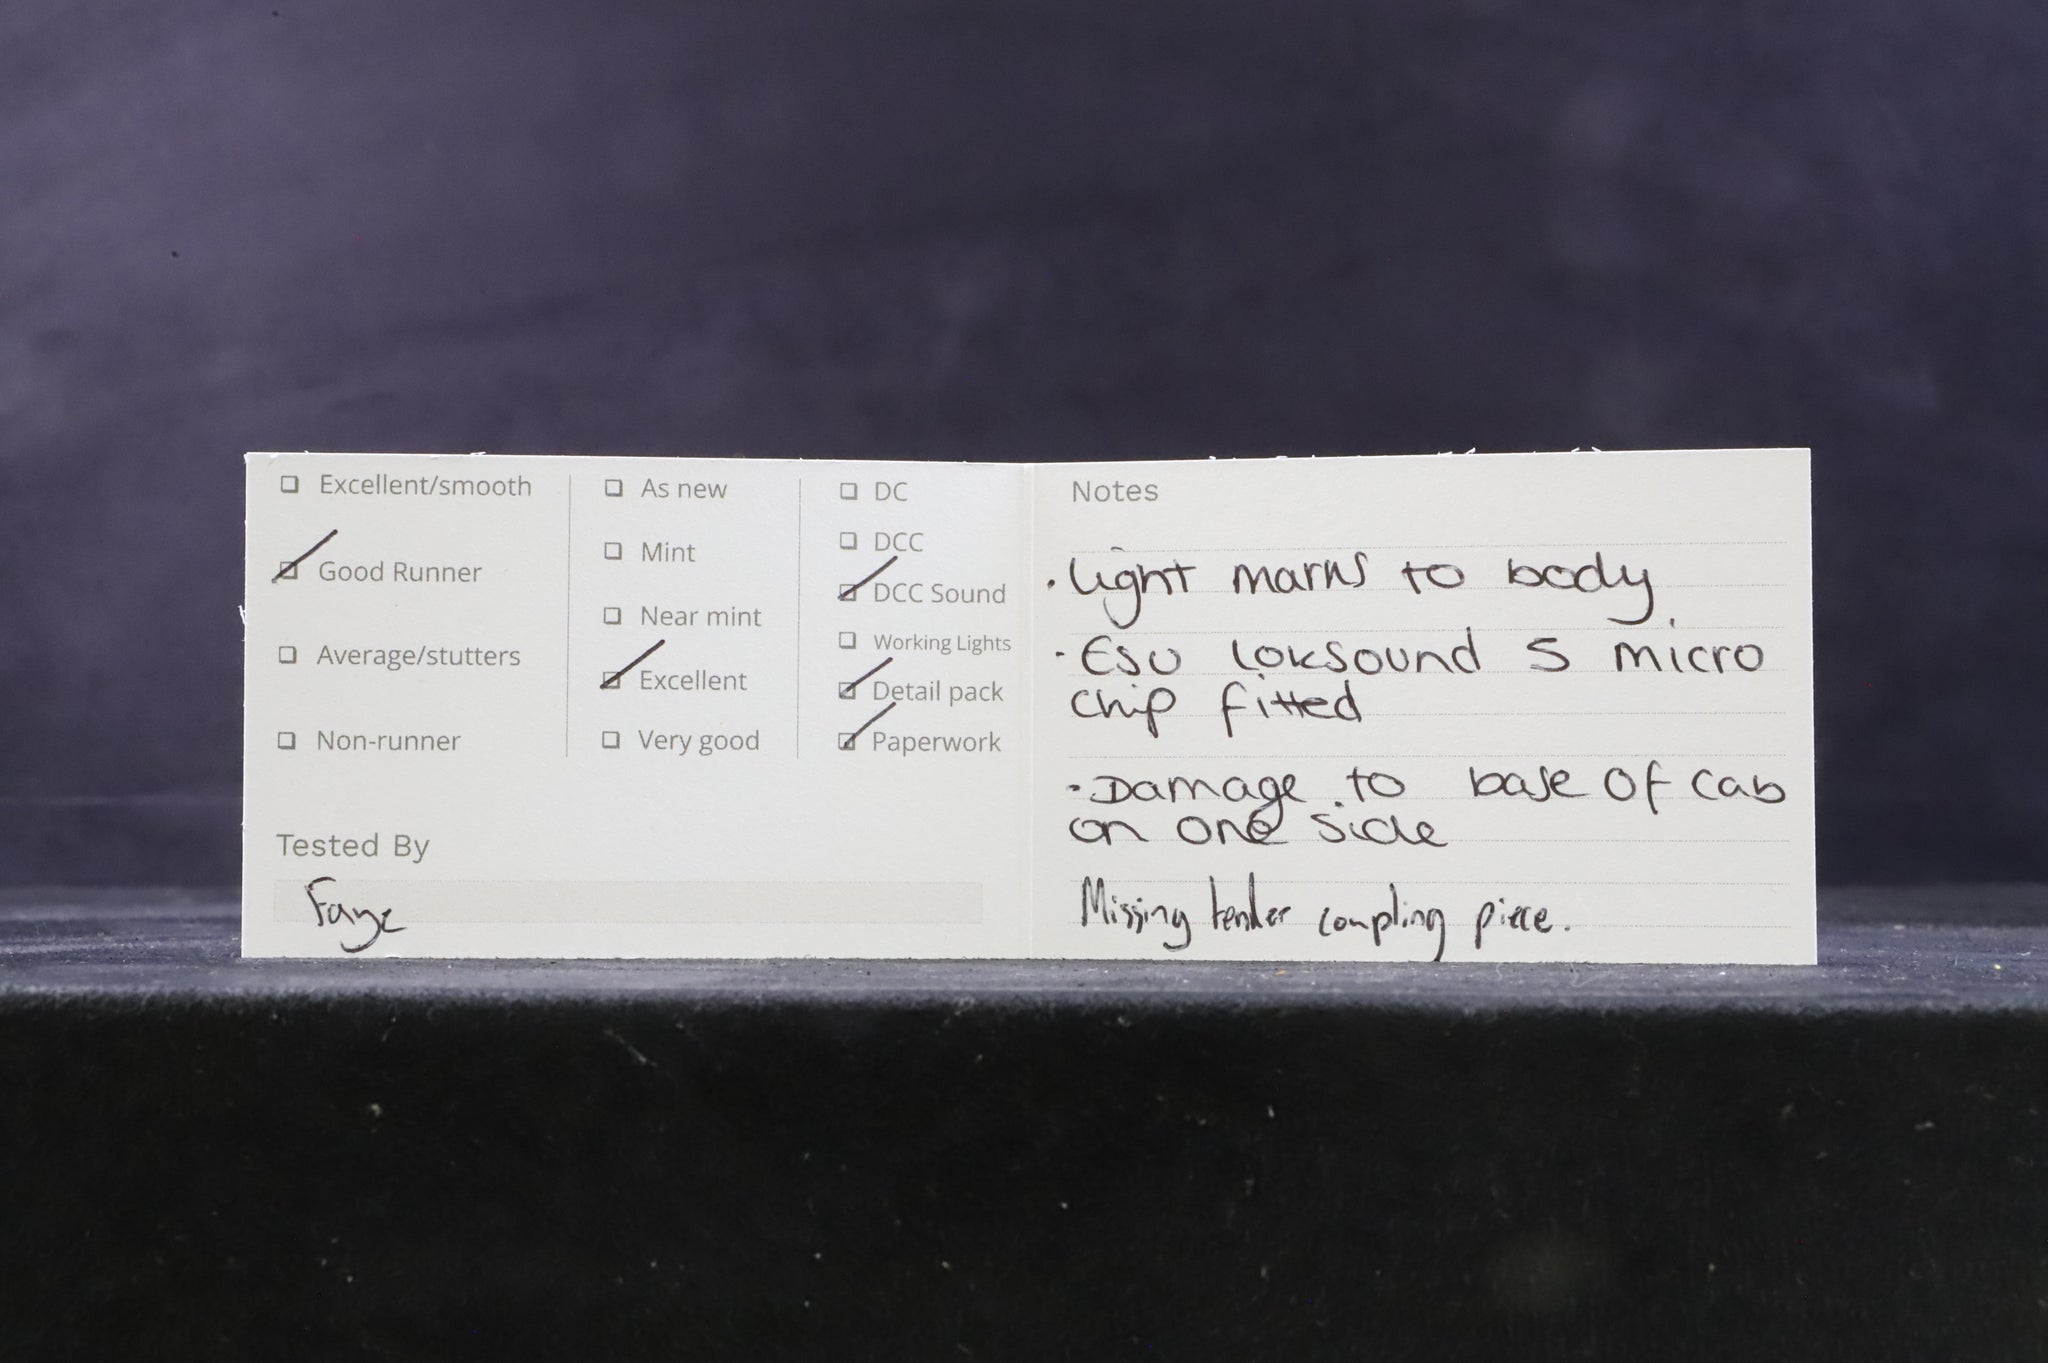 ☐ Excellent/smooth
☑ Good Runner
☐ Average/stutters
☐ Non-runner
☐ As new
☐ Mint
☐ Near mint
☑ Excellent
☐ Very good
☐ DC
☐ DCC
☑ DCC Sound
☐ Working Lights
☑ Detail pack
☑ Paperwork
Tested By
Faye
Notes
· Light marks to body
· ESU loksound 5 micro
chip fitted
· Damage to base of cab
on one side
Missing tender coupling piece.